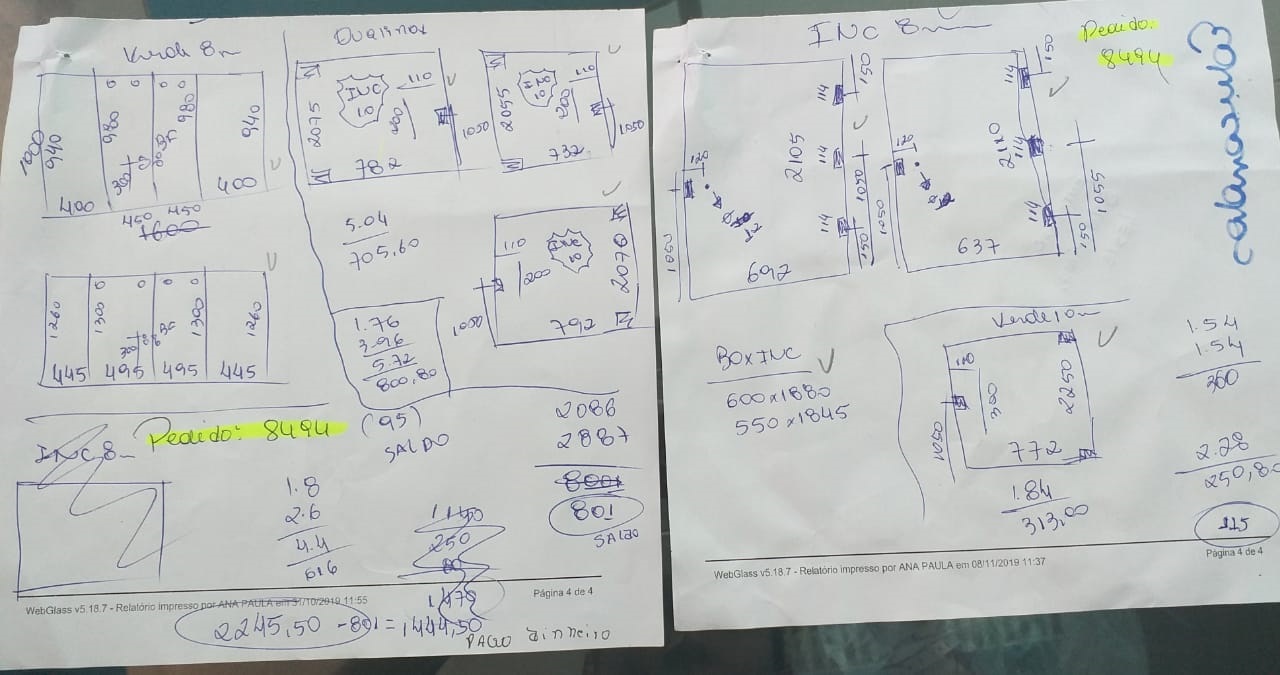 Verde 8m
1000
940
980
980
940
300
400
450
450
400
1600
1260
1300
300
1300
1260
445
495
495
445
INC 10
110
2075
200
1050
782
INC 10
110
2055
200
1050
732
5.04
705,60
110
INC 10
200
2070
1050
792
1.76
3.96
5.72
800,80
INC 8m
Pedido: 8494
(95)
SALDO
2086
2887
801
801
SALDO
1.8
2.6
4.4
616
250
WebGlass v5.18.7 - Relatório impresso por ANA PAULA em 31/10/2019 11:55
Página 4 de 4
2245,50 - 801 = 1444,50
PAGO Dinheiro
INC 8m
Pedido:
8494
114
150
120
2105
114
1050
114
150
1050
692
114
150
120
2110
114
1055
114
150
1050
637
BOX INC
600 x 1880
550 x 1845
Verde 10m
110
300
2250
1050
772
1.84
313,00
1.54
1.54
360
2.28
250,80
115
Página 4 de 4
WebGlass v5.18.7 - Relatório impresso por ANA PAULA em 08/11/2019 11:37